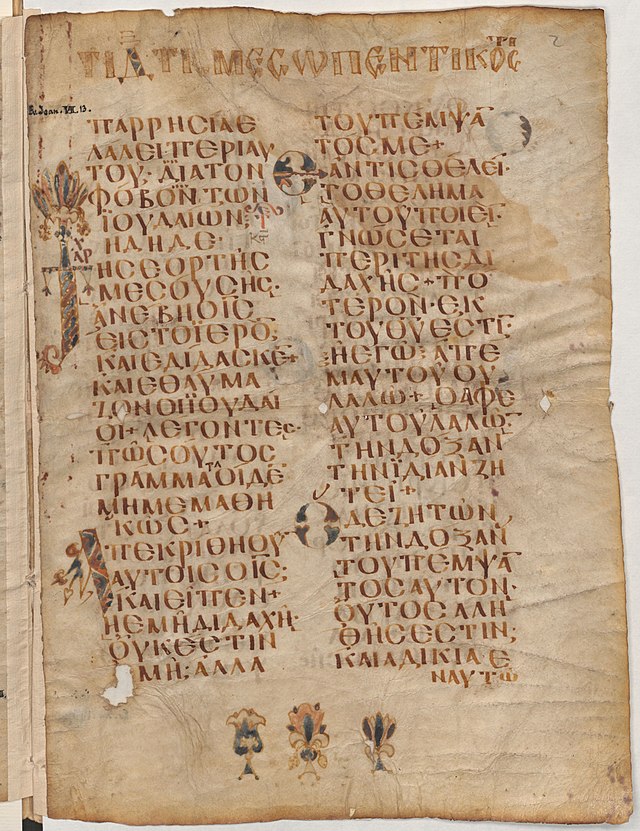 ΤΙΔ ΤΗ ΜΕΣΩΠΕΝΤΙΚΟΣ
2
Ev. Joan. VII. 13.
ΠΑΡΡΗΣΙΑ Ε
ΛΑΛΕΙ ΠΕΡΙ ΑΥ
ΤΟΥ· ΔΙΑ ΤΟΝ
ΦΟΒΟΝ ΤΩΝ
ΙΟΥΔΑΙΩΝ
ΗΔΗ ΔΕ
ΤΗΣ ΕΟΡΤΗΣ
ΜΕΣΟΥΣΗΣ·
ΑΝΕΒΗ Ο ΙΣ
ΕΙΣ ΤΟ ΙΕΡΟ·
ΚΑΙ ΕΔΙΔΑΣΚΕ+
ΚΑΙ ΕΘΑΥΜΑ
ΖΟΝ ΟΙ ΙΟΥΔΑΙ
ΟΙ+ ΛΕΓΟΝΤΕΣ·
ΠΩΣ ΟΥΤΟΣ
ΓΡΑΜΜΑΤΑ ΟΙΔΕ
ΜΗ ΜΕΜΑΘΗ
ΚΩΣ+
ΑΠΕΚΡΙΘΗ ΟΥ
ΑΥΤΟΙΣ Ο ΙΣ;
ΚΑΙ ΕΙΠΕΝ+
Η ΕΜΗ ΔΙΔΑΧΗ·
ΟΥΚ ΕΣΤΙΝ
ΜΗ; ΑΛΛΑ
ΤΟΥ ΠΕΜΨΑ
ΤΟΣ ΜΕ+
ΕΑΝ ΤΙΣ ΘΕΛΕΙ·
ΤΟ ΘΕΛΗΜΑ
ΑΥΤΟΥ ΠΟΙΕΙ·
ΓΝΩΣΕΤΑΙ
ΠΕΡΙ ΤΗΣ ΔΙ
ΔΑΧΗΣ+ ΠΟ
ΤΕΡΟΝ· ΕΚ
ΤΟΥ ΘΥ ΕΣΤΙ·
Η ΕΓΩ ΑΠ Ε
ΜΑΥΤΟΥ ΟΥ
ΛΑΛΩ+ Ο ΑΦ Ε
ΑΥΤΟΥ ΛΑΛΩ·
ΤΗΝ ΔΟΞΑΝ
ΤΗΝ ΙΔΙΑΝ ΖΗ
ΤΕΙ+
Ο ΔΕ ΖΗΤΩΝ
ΤΗΝ ΔΟΞΑΝ
ΤΟΥ ΠΕΜΨΑ
ΤΟΣ ΑΥΤΟΝ·
ΟΥΤΟΣ ΑΛΗ
ΘΗΣ ΕΣΤΙΝ;
ΚΑΙ ΑΔΙΚΙΑ Ε
Ν ΑΥΤΩ